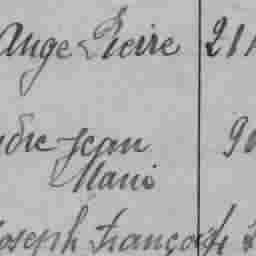 Ange Pierre 21
Jean
Marie
Joseph François